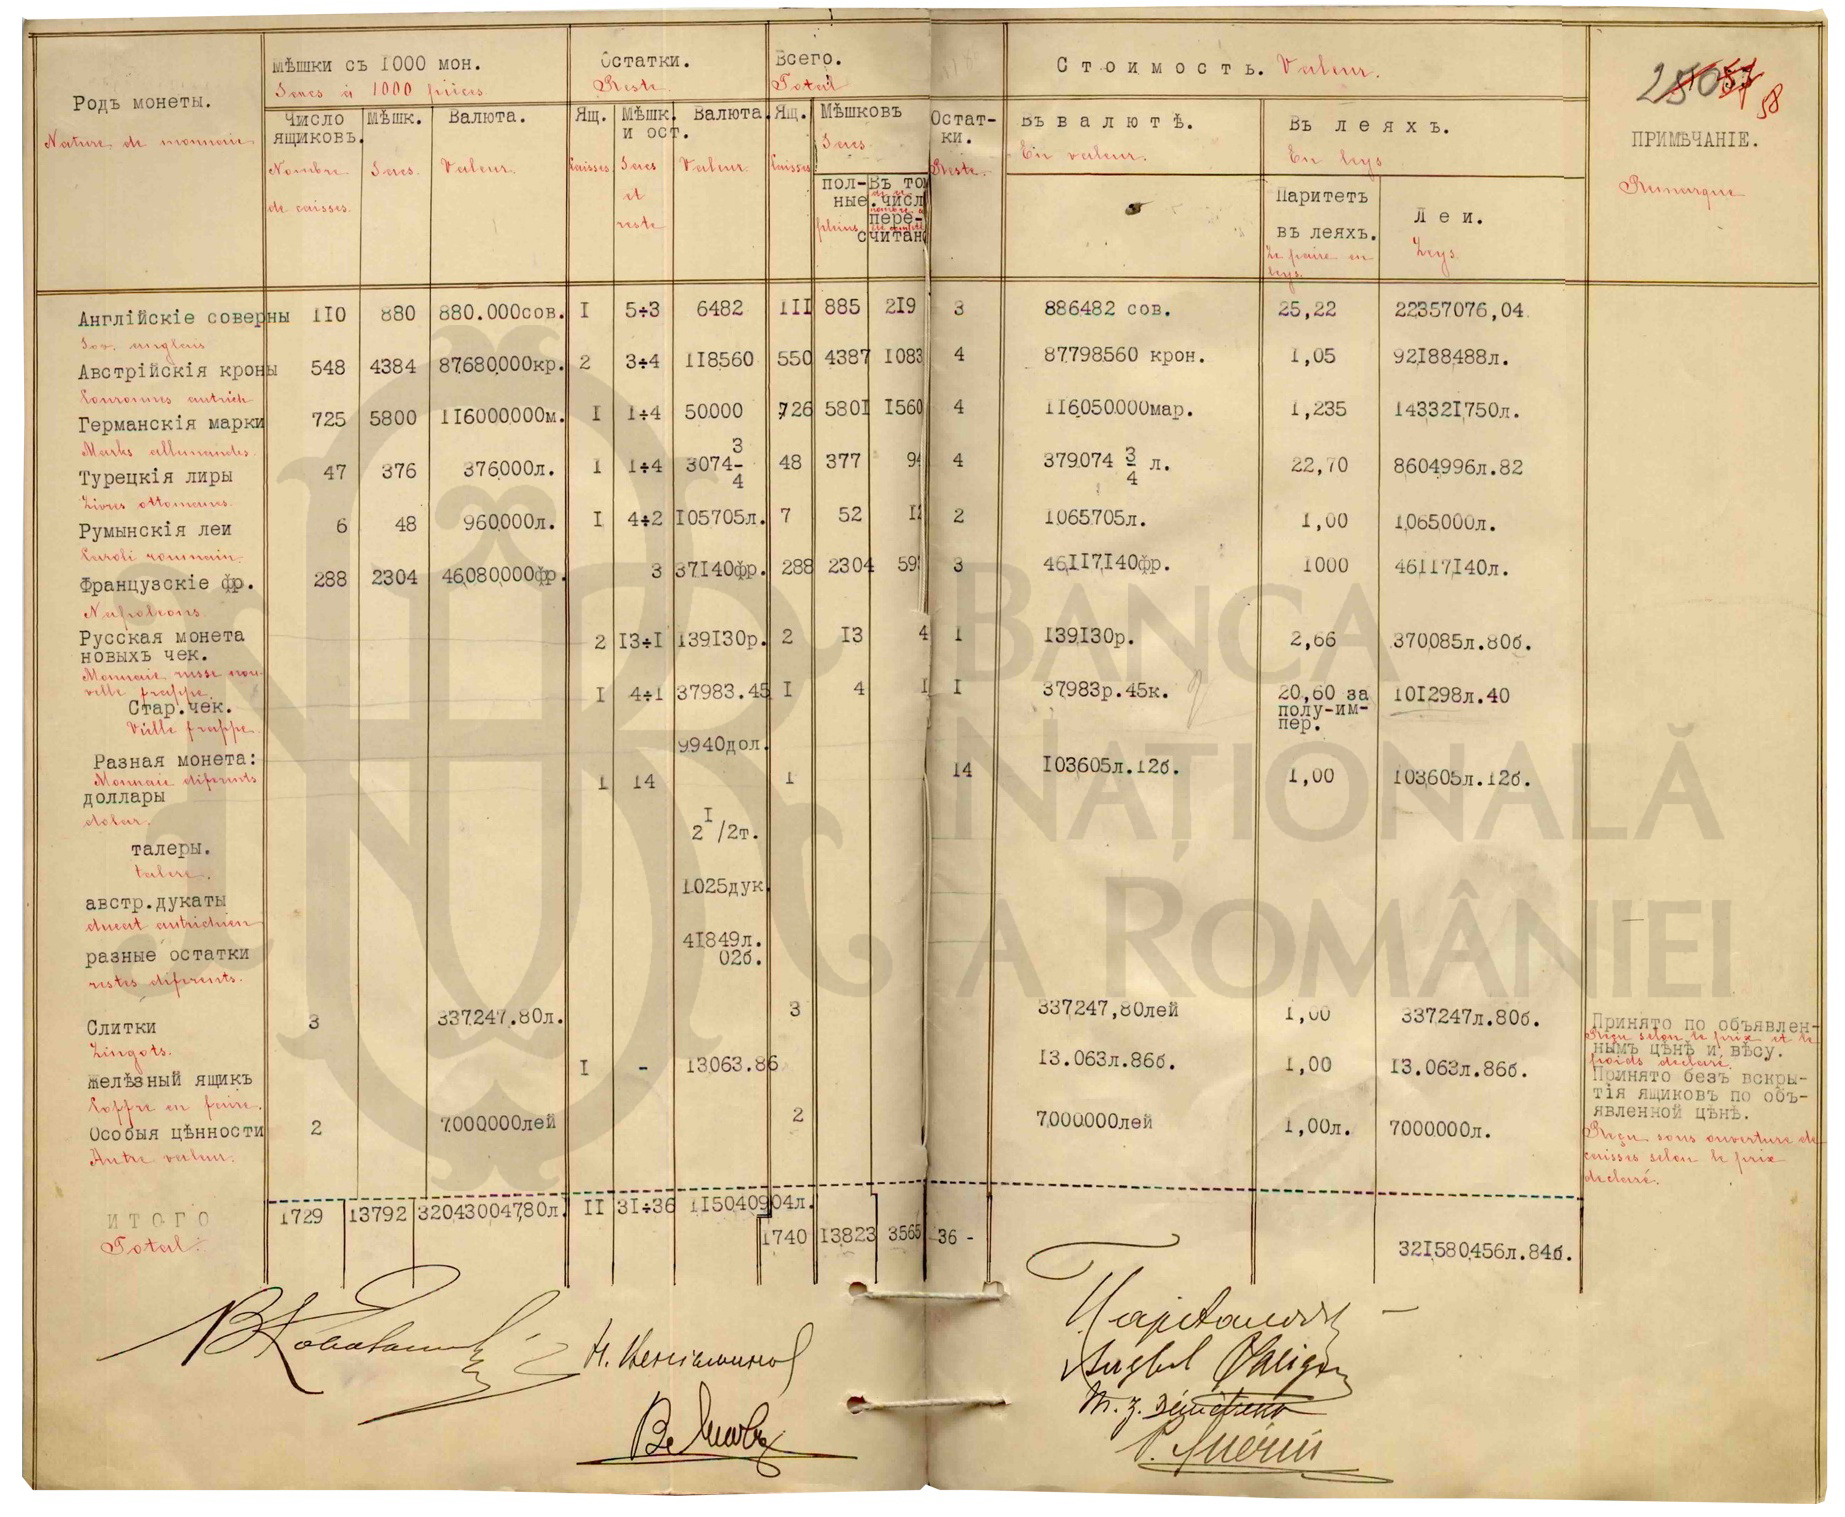 Родъ монеты.
Nature de monnaie
Мѣшки съ 1000 мон.
Sacs à 1000 pièces
Остатки.
Reste
Всего.
Total
Стоимость. Valeur.
58
ПРИМѢЧАНІЕ.
Remarque
Число ящиковъ.
Nombre de caisses.
Мѣшк.
Sacs.
Валюта.
Valeur.
Ящ.
Caisses
Мѣшк. и ост.
Sacs et reste
Валюта
Valeur.
Ящ.
Caisses
Мѣшковъ
Sacs.
пол-
ные
pleins
Въ том
числ
пере-
считан
Остат-
ки.
Reste.
Въ валютѣ.
En valeur.
Въ леяхъ.
En leys
Паритетъ
въ леяхъ.
Le paire en
leys.
Леи.
Leys.
Англійскіе соверны 110 880 880.000сов. I 5÷3 6482 III 885 219 3 886482 сов. 25,22 22357076,04
Sov. anglais
Австрійскія кроны 548 4384 87680000кр. 2 3÷4 118560 550 4387 1083 4 87798560 крон. 1,05 92188488л.
Couronnes autrich
Германскія марки 725 5800 116000000м. I 1÷4 50000 726 5801 1560 4 116050000мар. 1,235 143321750л.
Marks allemandes.
Турецкія лиры 47 376 376000л. I 1÷4 3074-3/4 48 377 94 4 379074 3/4 л. 22,70 8604996л.82
Livres ottomanes.
Румынскія леи 6 48 960000л. I 4÷2 105705л. 7 52 12 2 1065705л. 1,00 1065000л.
Caroli roumain.
Французскіе фр. 288 2304 46080000фр. 3 37140фр. 288 2304 59 3 46117140фр. 1000 46117140л.
Napoleons.
Русская монета
новыхъ чек. 2 13÷1 139130р. 2 13 4 I 139130р. 2,66 370085л.80б.
Monnaie russe nou-
velle frappe.
Стар.чек. I 4÷1 37983.45 I 4 I I 37983р.45к. 20,60 за
полу-им-
пер. 101298л.40
Vielle frappe.
9940дол.
Разная монета: 1 14 1 14 103605л.12б. 1,00 103605л.12б.
Monnaie diferents
доллары
dolar.
2 I/2т.
талеры.
talere.
1025дук
австр.дукаты
ducat autrichien
41849л.
02б.
разные остатки
restes diferents.
Слитки 3 337247.80л. 3 337247,80лей 1,00 337247л.80б.
Lingots.
Принято по объявлен-
Reçu selon le prix et le
нымъ цѣнѣ и вѣсу.
poids declaré
желѣзный ящикъ I - 13063.86 13.063л.86б. 1,00 13.063л.86б.
Coffre en faire.
Принято безъ вскры-
тія ящиковъ по объ-
явленной цѣнѣ.
Особыя цѣнности 2 7000000лей 2 7000000лей 1,00л. 7000000л.
Autre valeur.
Reçu sans ouverture de
caisses selon le prix
declaré.
ИТОГО 1729 13792 320430047,80л. II 31÷36 11504O904л. 1740 13823 3565 36 - 321580456л.84б.
Total.
BANCA
NAȚIONALĂ
A ROMÂNIEI